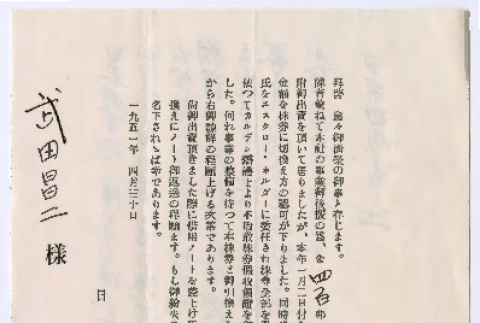 拝啓 益々御清栄の御事と存じます。
陳者兼ねて本社の事業御後援の為、金 四百 弗
附御出資を頂いて居りましたが、本年一月二日付
金額を株券に切換え方の認可が下りました。同時
氏をエスクロー・ホルダーに委任され株券全部を
依つてカルデン辯護士より不取敢株券假收領證を
した。何れ事業の整備を待つて本株券と御引換え
から右御諒解の程願上げる次第であります。
尚御出資頂きました際に借用ノートを差上げ
換えにノート御返送の程願ます。もし御紛失
名下されば幸であります。
一九五一年 四月三十日
武田昌二 様
日